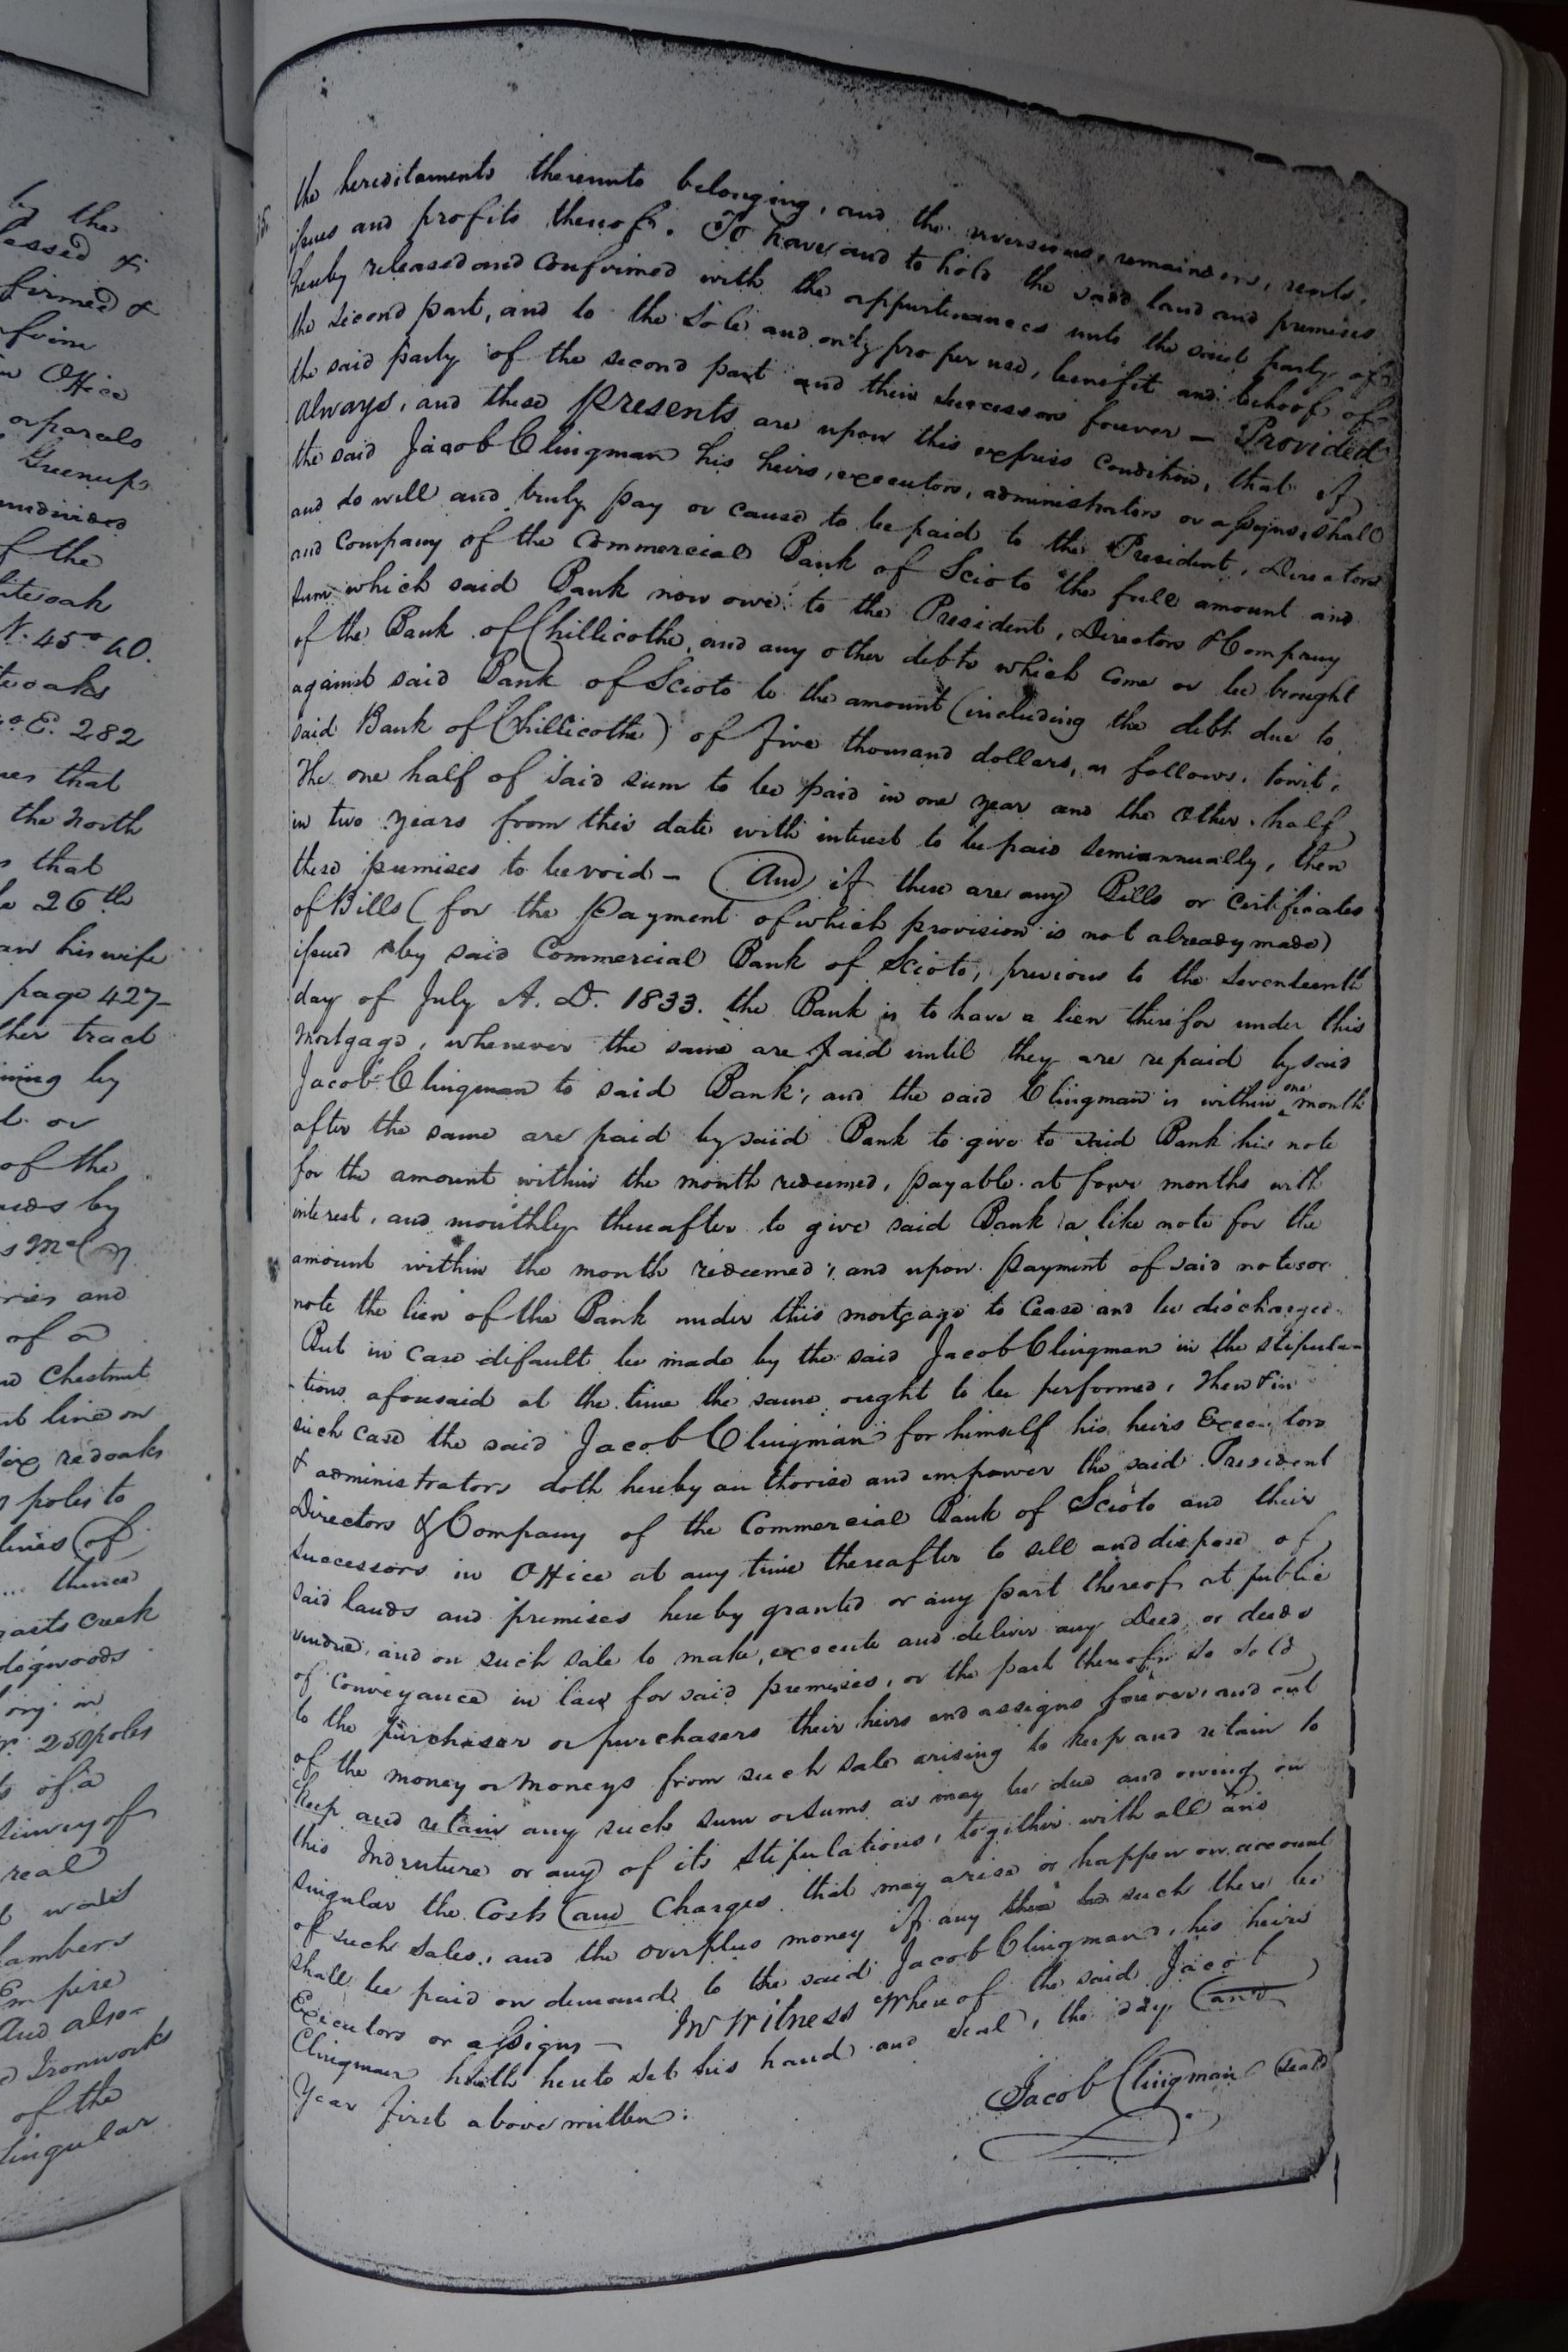 by the
firmed &
Office
or parcels
Greenup
undivided
of the
N. 45° 60.
E. 282
that
the North
that
26th
his wife
page 427-
other tract
by
or
of the
by
and
of a
Chestnut
line on
redoaks
poles to
lines of
... thence
creek
dogwoods
in
250 poles
of a
Survey of
real
Empire
And also
Ironworks
of the
Singular
the hereditaments thereunto belonging, and the reversions, remainders, rents,
issues and profits thereof. To have and to hold the said land and premises
hereby released and confirmed with the appurtenances unto the said party of
the second part, and to the sole and only proper use, benefit and behoof of
the said party of the second part and their successors forever - Provided
always, and these Presents are upon this express condition, that if
the said Jacob Clingman his heirs, executors, administrators or assigns, shall
and do well and truly pay or cause to be paid to the President, Directors
and Company of the Commercial Bank of Scioto the full amount and
sum which said Bank now owe to the President, Directors & Company
of the Bank of Chillicothe, and any other debts which come or be brought
against said Bank of Scioto to the amount (including the debt due to
said Bank of Chillicothe) of five thousand dollars, as follows, towit,
The one half of said sum to be paid in one year and the other half
in two years from this date with interest to be paid semiannually, then
these premises to be void - And if there are any Bills or certificates
of Bills (for the Payment of which provision is not already made)
issued by said Commercial Bank of Scioto, previous to the seventeenth
day of July A. D. 1833. the Bank is to have a lien therefor under this
Mortgage, whenever the same are paid until they are repaid by said
Jacob Clingman to said Bank, and the said Clingman is within one month
after the same are paid by said Bank to give to said Bank his note
for the amount within the month redeemed, payable at four months with
interest, and monthly thereafter to give said Bank a like note for the
amount within the month redeemed; and upon payment of said notes or
note the lien of the Bank under this mortgage to cease and be discharged.
But in case default be made by the said Jacob Clingman in the stipula-
-tions aforesaid at the time the same ought to be performed, Then & in
such case the said Jacob Clingman for himself his heirs Executors
& administrators doth hereby authorise and empower the said President
Directors & Company of the Commercial Bank of Scioto and their
successors in Office at any time thereafter to sell and dispose of
said lands and premises hereby granted or any part thereof at public
vendue, and on such sale to make, execute and deliver any Deed or deeds
of conveyance in law for said premises, or the part thereof so sold
to the purchaser or purchasers their heirs and assigns forever, and out
of the money or moneys from such sale arising to keep and retain to
keep and retain any such sum or sums as may be due and owing on
this Indenture or any of its stipulations, together with all and
singular the Costs and Charges that may arise or happen on account
of such sales, and the overplus money if any such there be
shall be paid on demand to the said Jacob Clingman, his heirs
Executors or assigns - In Witness Whereof the said Jacob
Clingman hath hereto set his hand and seal, the day and
Year first above written.
Jacob Clingman Seal